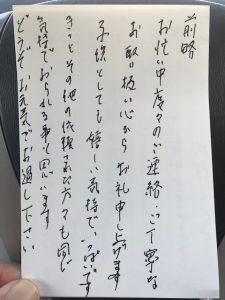 前略
お忙い中度々のご連絡・ご丁寧な
お取り扱い心からお礼申し上げます
子供としても嬉しい気持でいっぱいです
きっとその他の依頼された方々も同じ
気持でおられる事と思います
どうぞお元気でお過し下さい